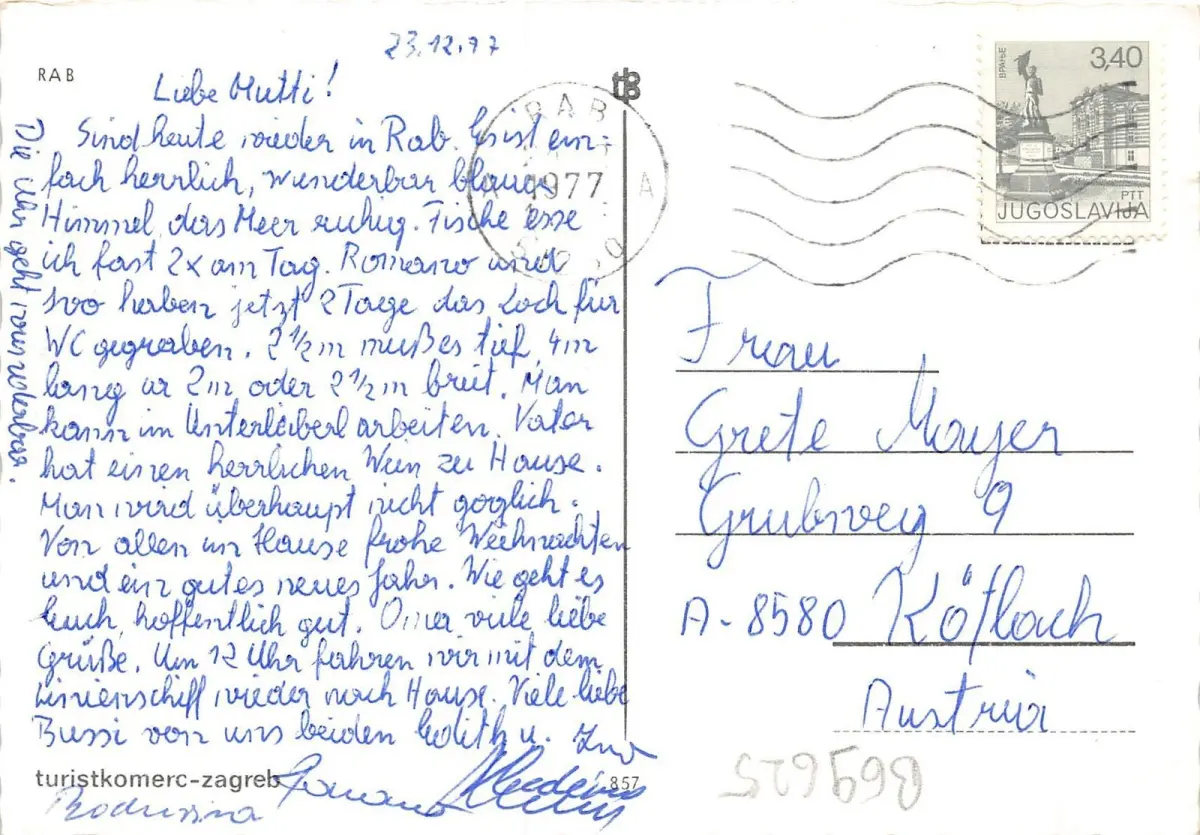 23.12.77
RAB
Liebe Mutti!
Sind heute wieder in Rab. Es ist ein-
fach herrlich, wunderbar blauer
Himmel, das Meer ruhig. Fische esse
ich fast 2x am Tag. Romano und
Ivo haben jetzt 2 Tage das Loch für
WC gegraben. 2 1/2 m muß es tief, 4 m
lang u 2 m oder 2 1/2 m breit. Man
kann im Unterleiberl arbeiten. Vater
hat einen herrlichen Wein zu Hause.
Man wird überhaupt nicht
Von allen im Hause frohe Weihnachten
und ein gutes neues Jahr. Wie geht es
Euch, hoffentlich gut. Omer viele liebe
Grüße. Um 12 Uhr fahren wir mit dem
Linienschiff wieder nach Hause. Viele liebe
Bussi von uns beiden Edith u. Ivo
Die Uhr geht wunderbar.
turistkomerc-zagreb
857
Romano
RAB
1977
A
ВРАЊЕ
3,40
PTT
JUGOSLAVIJA
Frau
Grete Mayer
Grubsweg 9
A-8580 Köflach
Austria
B69625